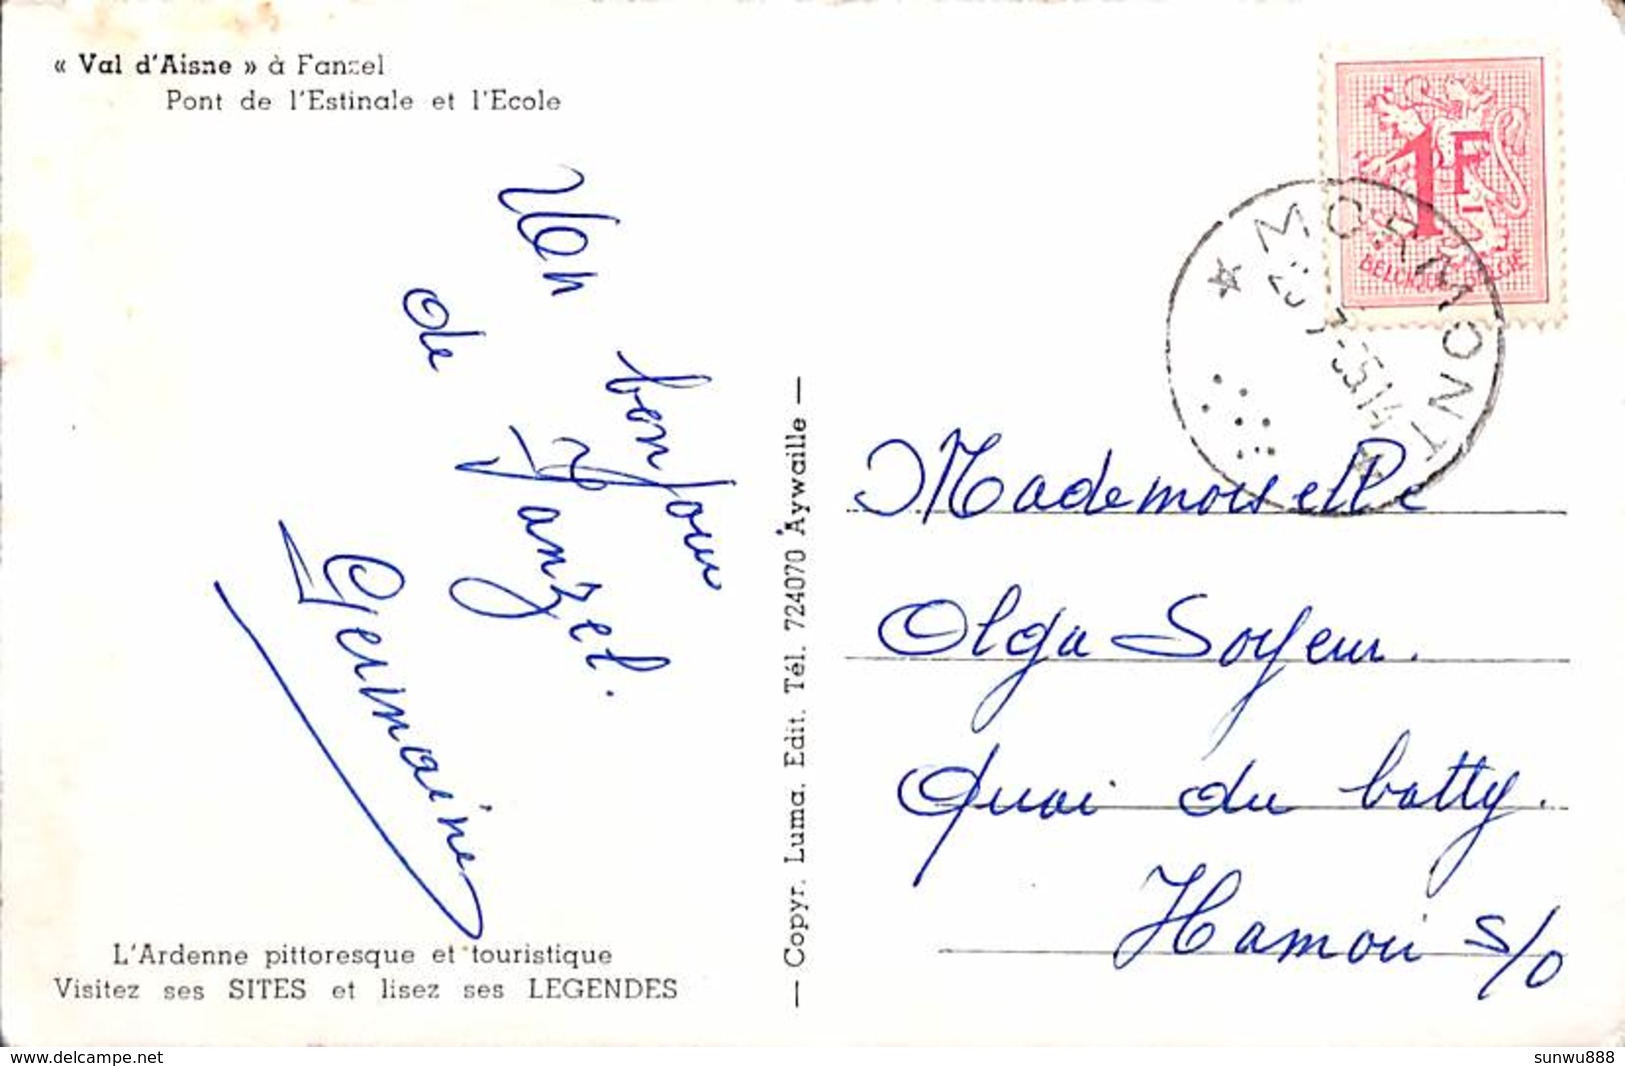 « Val d'Aisne » à Fanzel
Pont de l'Estinale et l'Ecole
Un bonjour
de Fanzel.
Germaine
L'Ardenne pittoresque et touristique
Visitez ses SITES et lisez ses LEGENDES
— Copyr. Luma. Edit. Tél. 724070 Aywaille —
1F
BELGIQUE-BELGIË
MORMONT
Mademoiselle
Olga Soyeur.
Quai du batty.
Hamoir s/o
www.delcampe.net
sunwu888